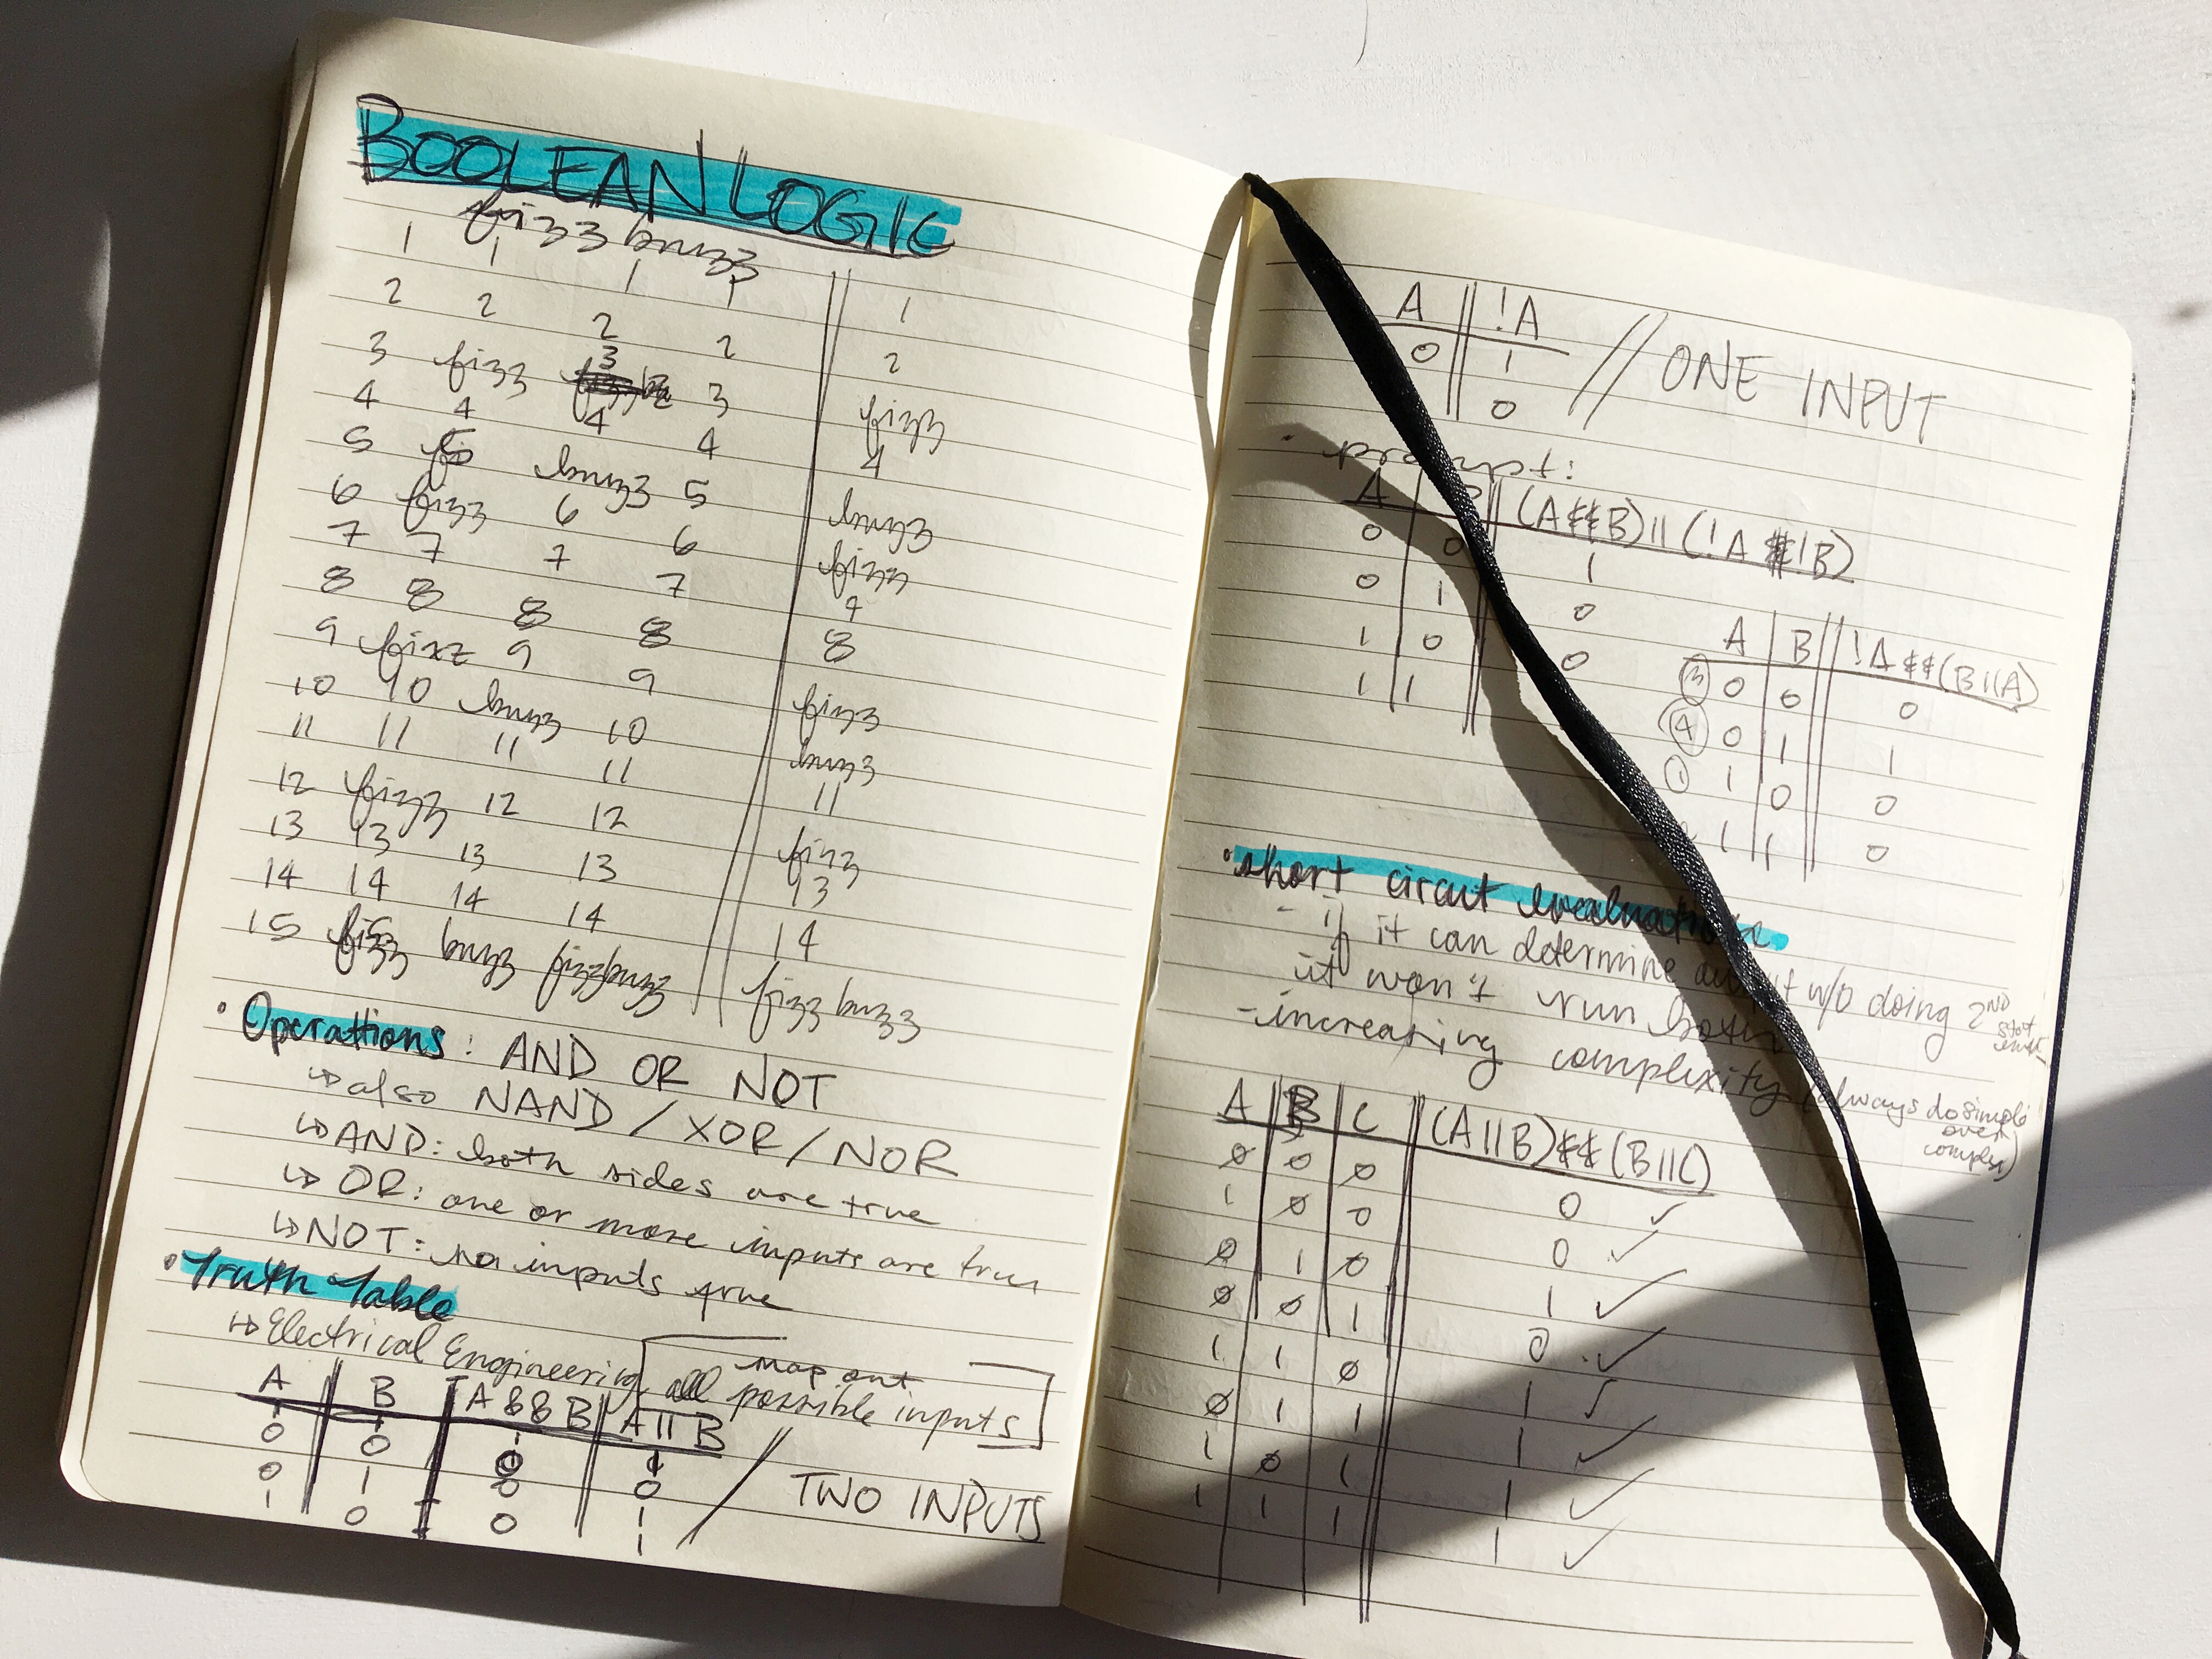 BOOLEAN LOGIC
fizz buzz
1 1 1 1 1
2 2 2 2 2
3 fizz 3 3 fizz
4 4 4 4 4
5 5 buzz 5 buzz
6 fizz 6 6 fizz
7 7 7 7 7
8 8 8 8 8
9 fixz 9 9 fizz
10 10 buzz 10 buzz
11 11 11 11 11
12 fizz 12 12 fizz
13 13 13 13 13
14 14 14 14 14
15 fizz buzz fizzbuzz fizz buzz
• Operations: AND OR NOT
↳ also NAND / XOR / NOR
↳ AND: both sides are true
↳ OR: one or more inputs are true
↳ NOT: no inputs true
• Truth Table
↳ Electrical Engineering, map out
all possible inputs
A B A && B A || B
0 0 0 0
0 1 0 1
1 0 0 1
/ TWO INPUTS
A !A
0 1
0
// ONE INPUT
• prompt:
A (A&&B)||(!A &!B)
0 0 1
0 1 0
1 0 0
1 1
A B !A &&(B||A)
3 0 0 0
4 0 1 1
1 1 0 0
1 1 0
• short circut evaluation
- if it can determine w/o doing 2ND
it won't run both
- increasing complexity (always do simple
over
complex)
A B C (A||B)&&(B||C)
0 0 0 0 ✓
1 0 0 0 ✓
0 1 0 1 ✓
0 0 1 0 ✓
1 1 0 1 ✓
0 1 1 1 ✓
1 0 1 1 ✓
1 1 1 1 ✓